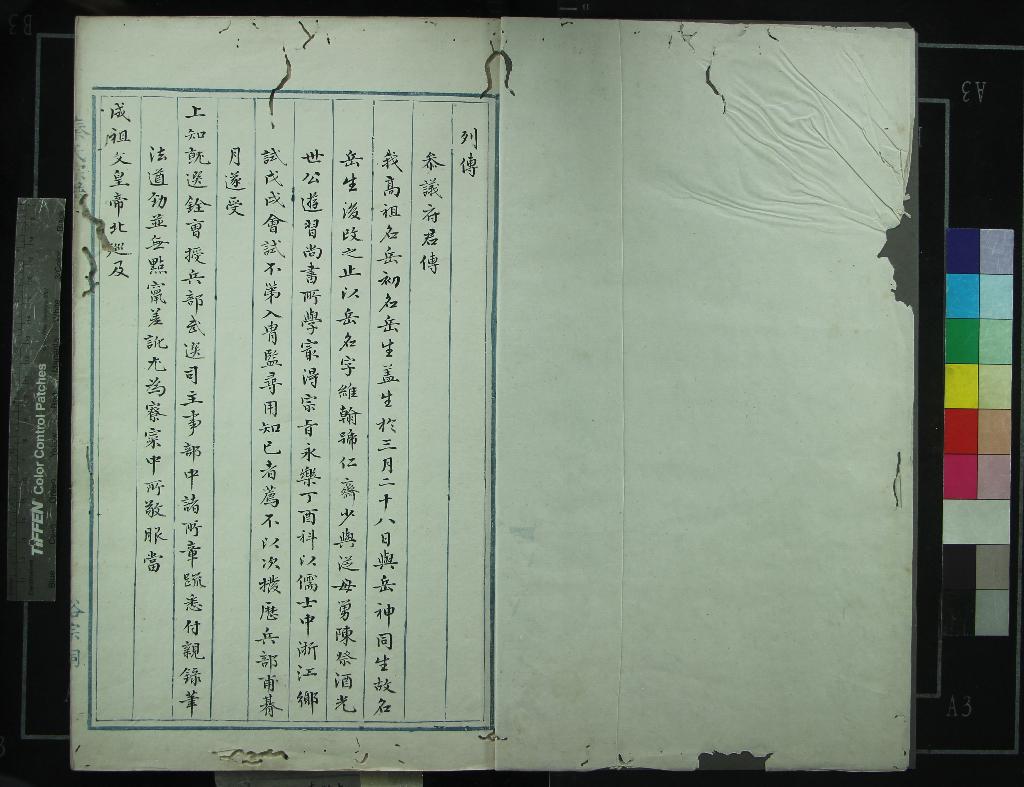 列傳
叅議府君傳
我高祖名岳初名岳生盖生於三月二十八日與岳神同生故名
岳生後改之止以岳名字維翰號仁齋少與從母舅陳祭酒光
世公遊習尚書所學最得宗旨永樂丁酉科以儒士中浙江鄉
試戊戌會試不第入胄監尋用知已者薦不以次撥歷兵部甫朞
月遂受
上知旣選銓曹授兵部武選司主事部中諸所章疏悉付親錄筆
法道勁並無點竄差訛尤為寮寀中所敬服當
成祖文皇帝北廵及
TIFFEN Color Control Patches
A3
A3
B3